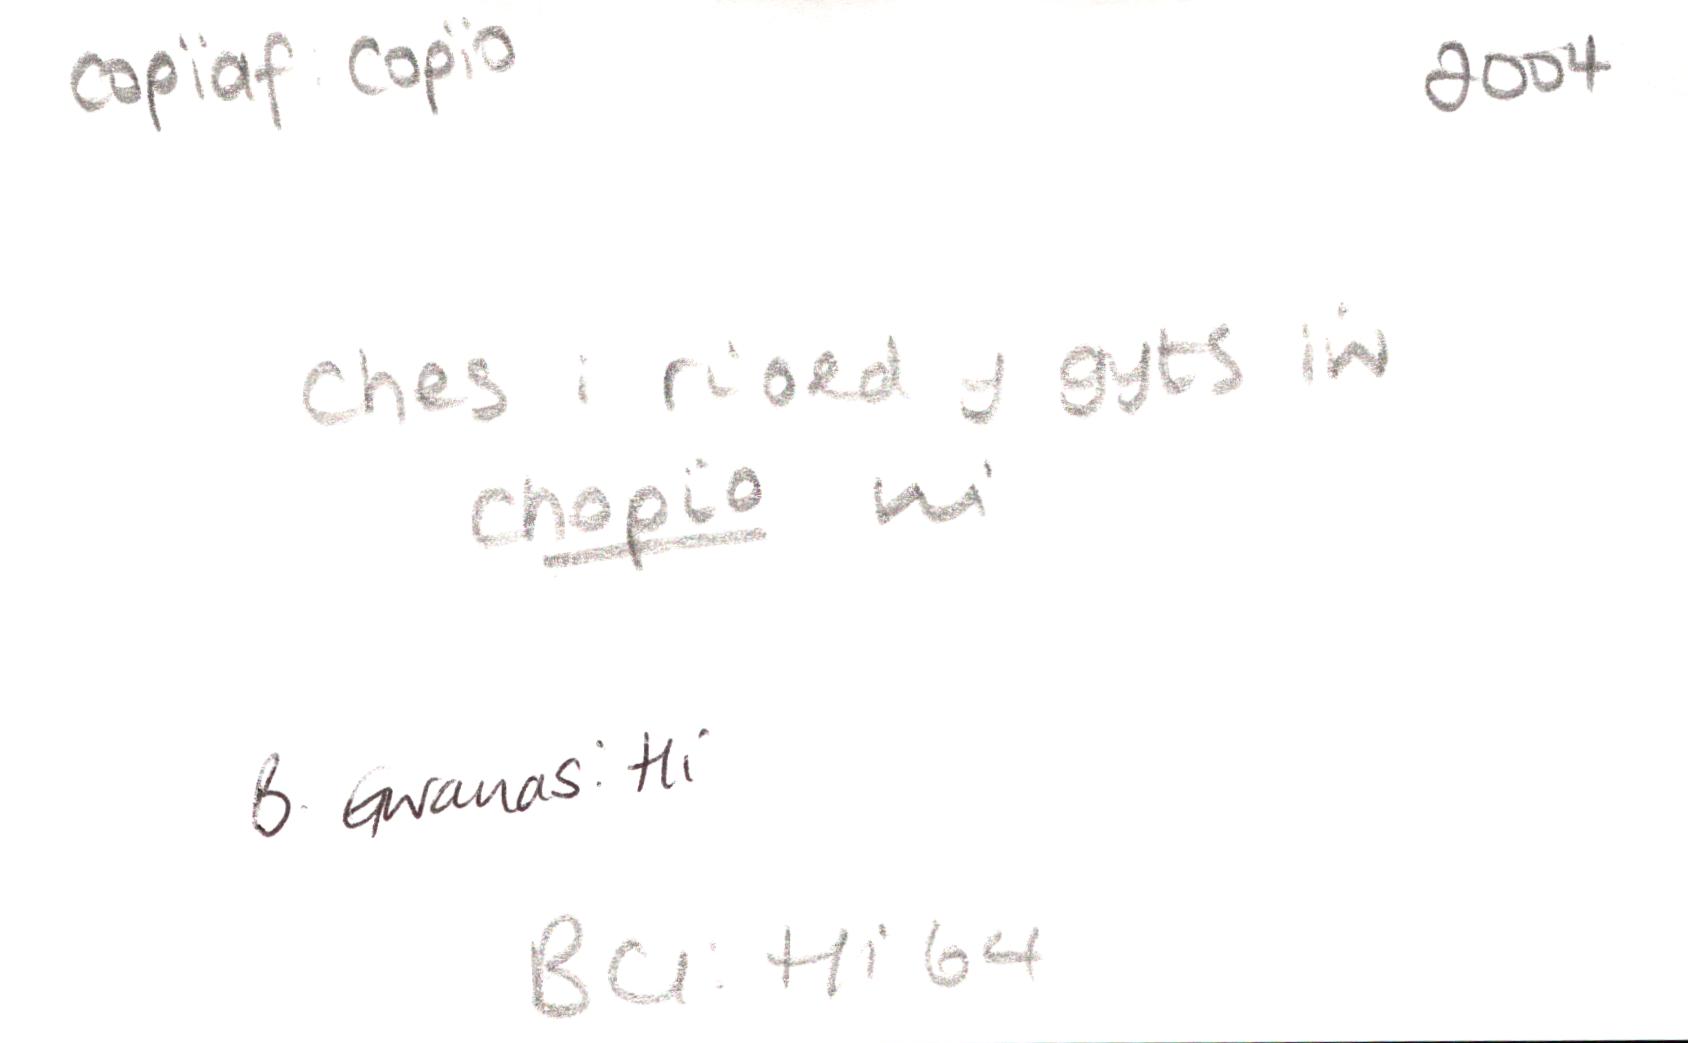 copïaf: copïo 2004
ches i rioed y gyts i'w
chopïo hi
B. Gwanas: Hi
BG: Hi 64